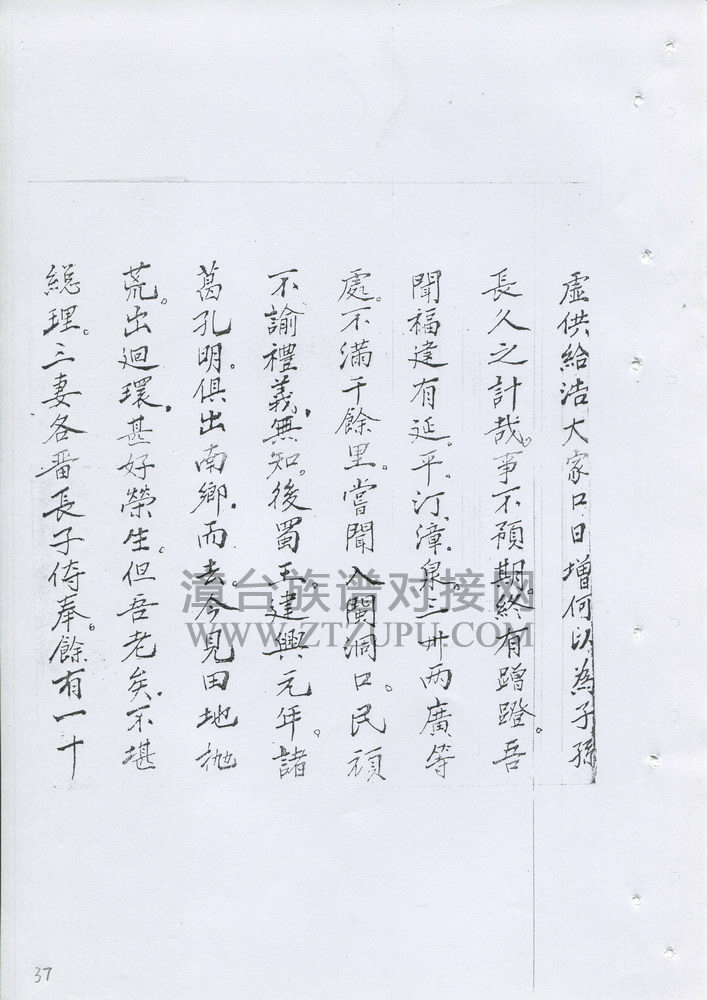 虛供給浩大家口日增何以為子孫
長久之計哉。事不預期。終有蹭蹬。吾
聞福建有延。平。汀漳。泉。三卅两廣等
處。不滿千餘里。嘗聞入閩洞口。民頑
不諭禮義。無知。後蜀王建興元年。諸
葛孔明。俱出南鄉。而去今見田地抛
荒。出迴環。甚好榮生。但吾老矣。不堪
総理。三妻各番長子侍奉。餘有一十
漳台族谱对接网
WWW.ZTZUPU.COM
37